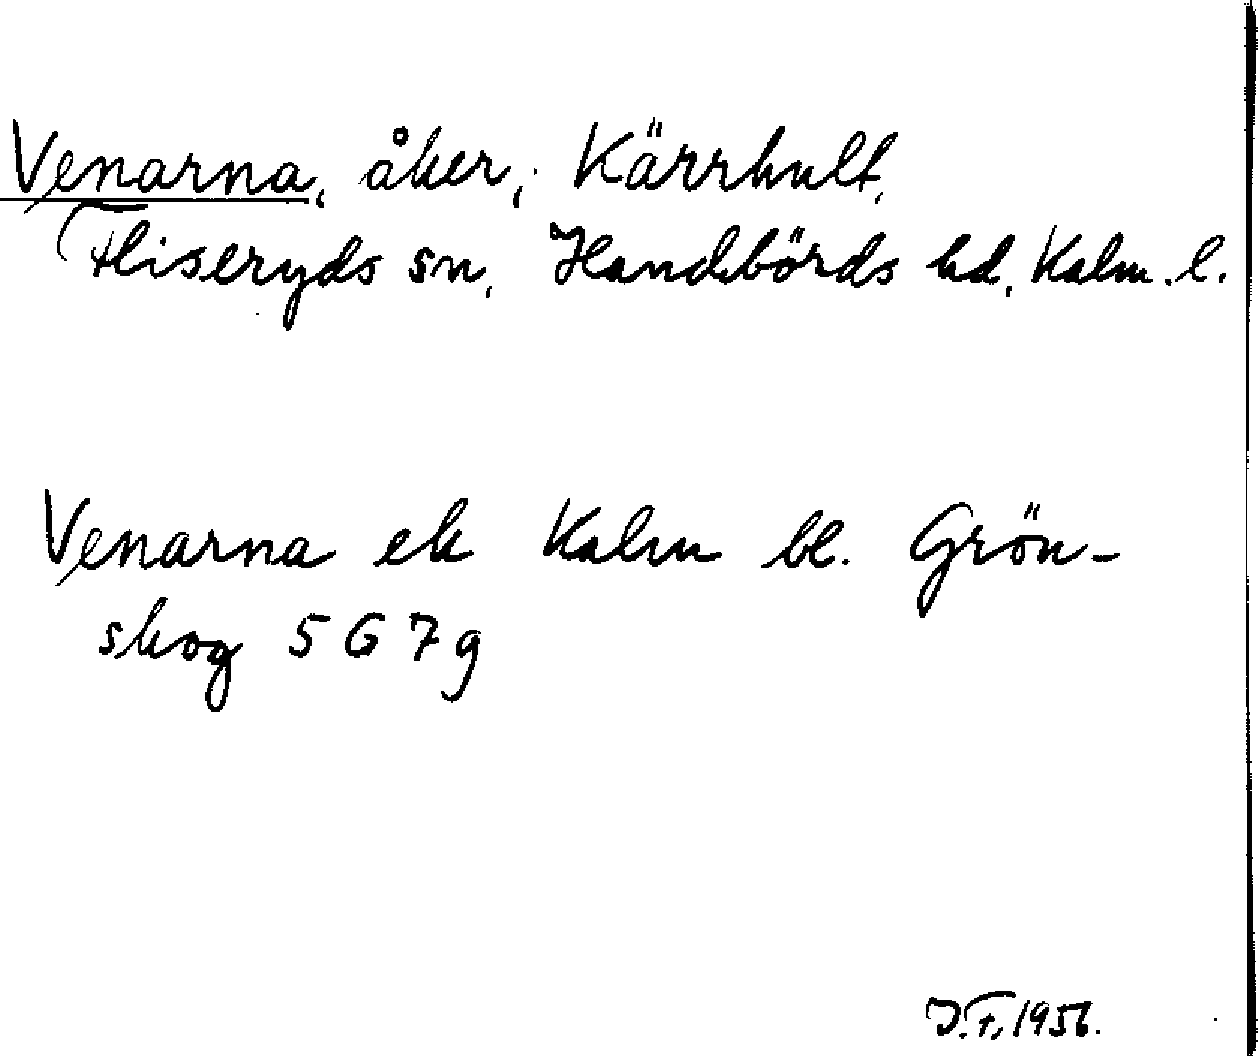 Venarna, åker, Kärrhult,
Fliseryds sn, Handbörds hd, Kalm. l.
Venarna ek Kalm bl. Grön-
skog 5 G 7 g
J.F. 1956.